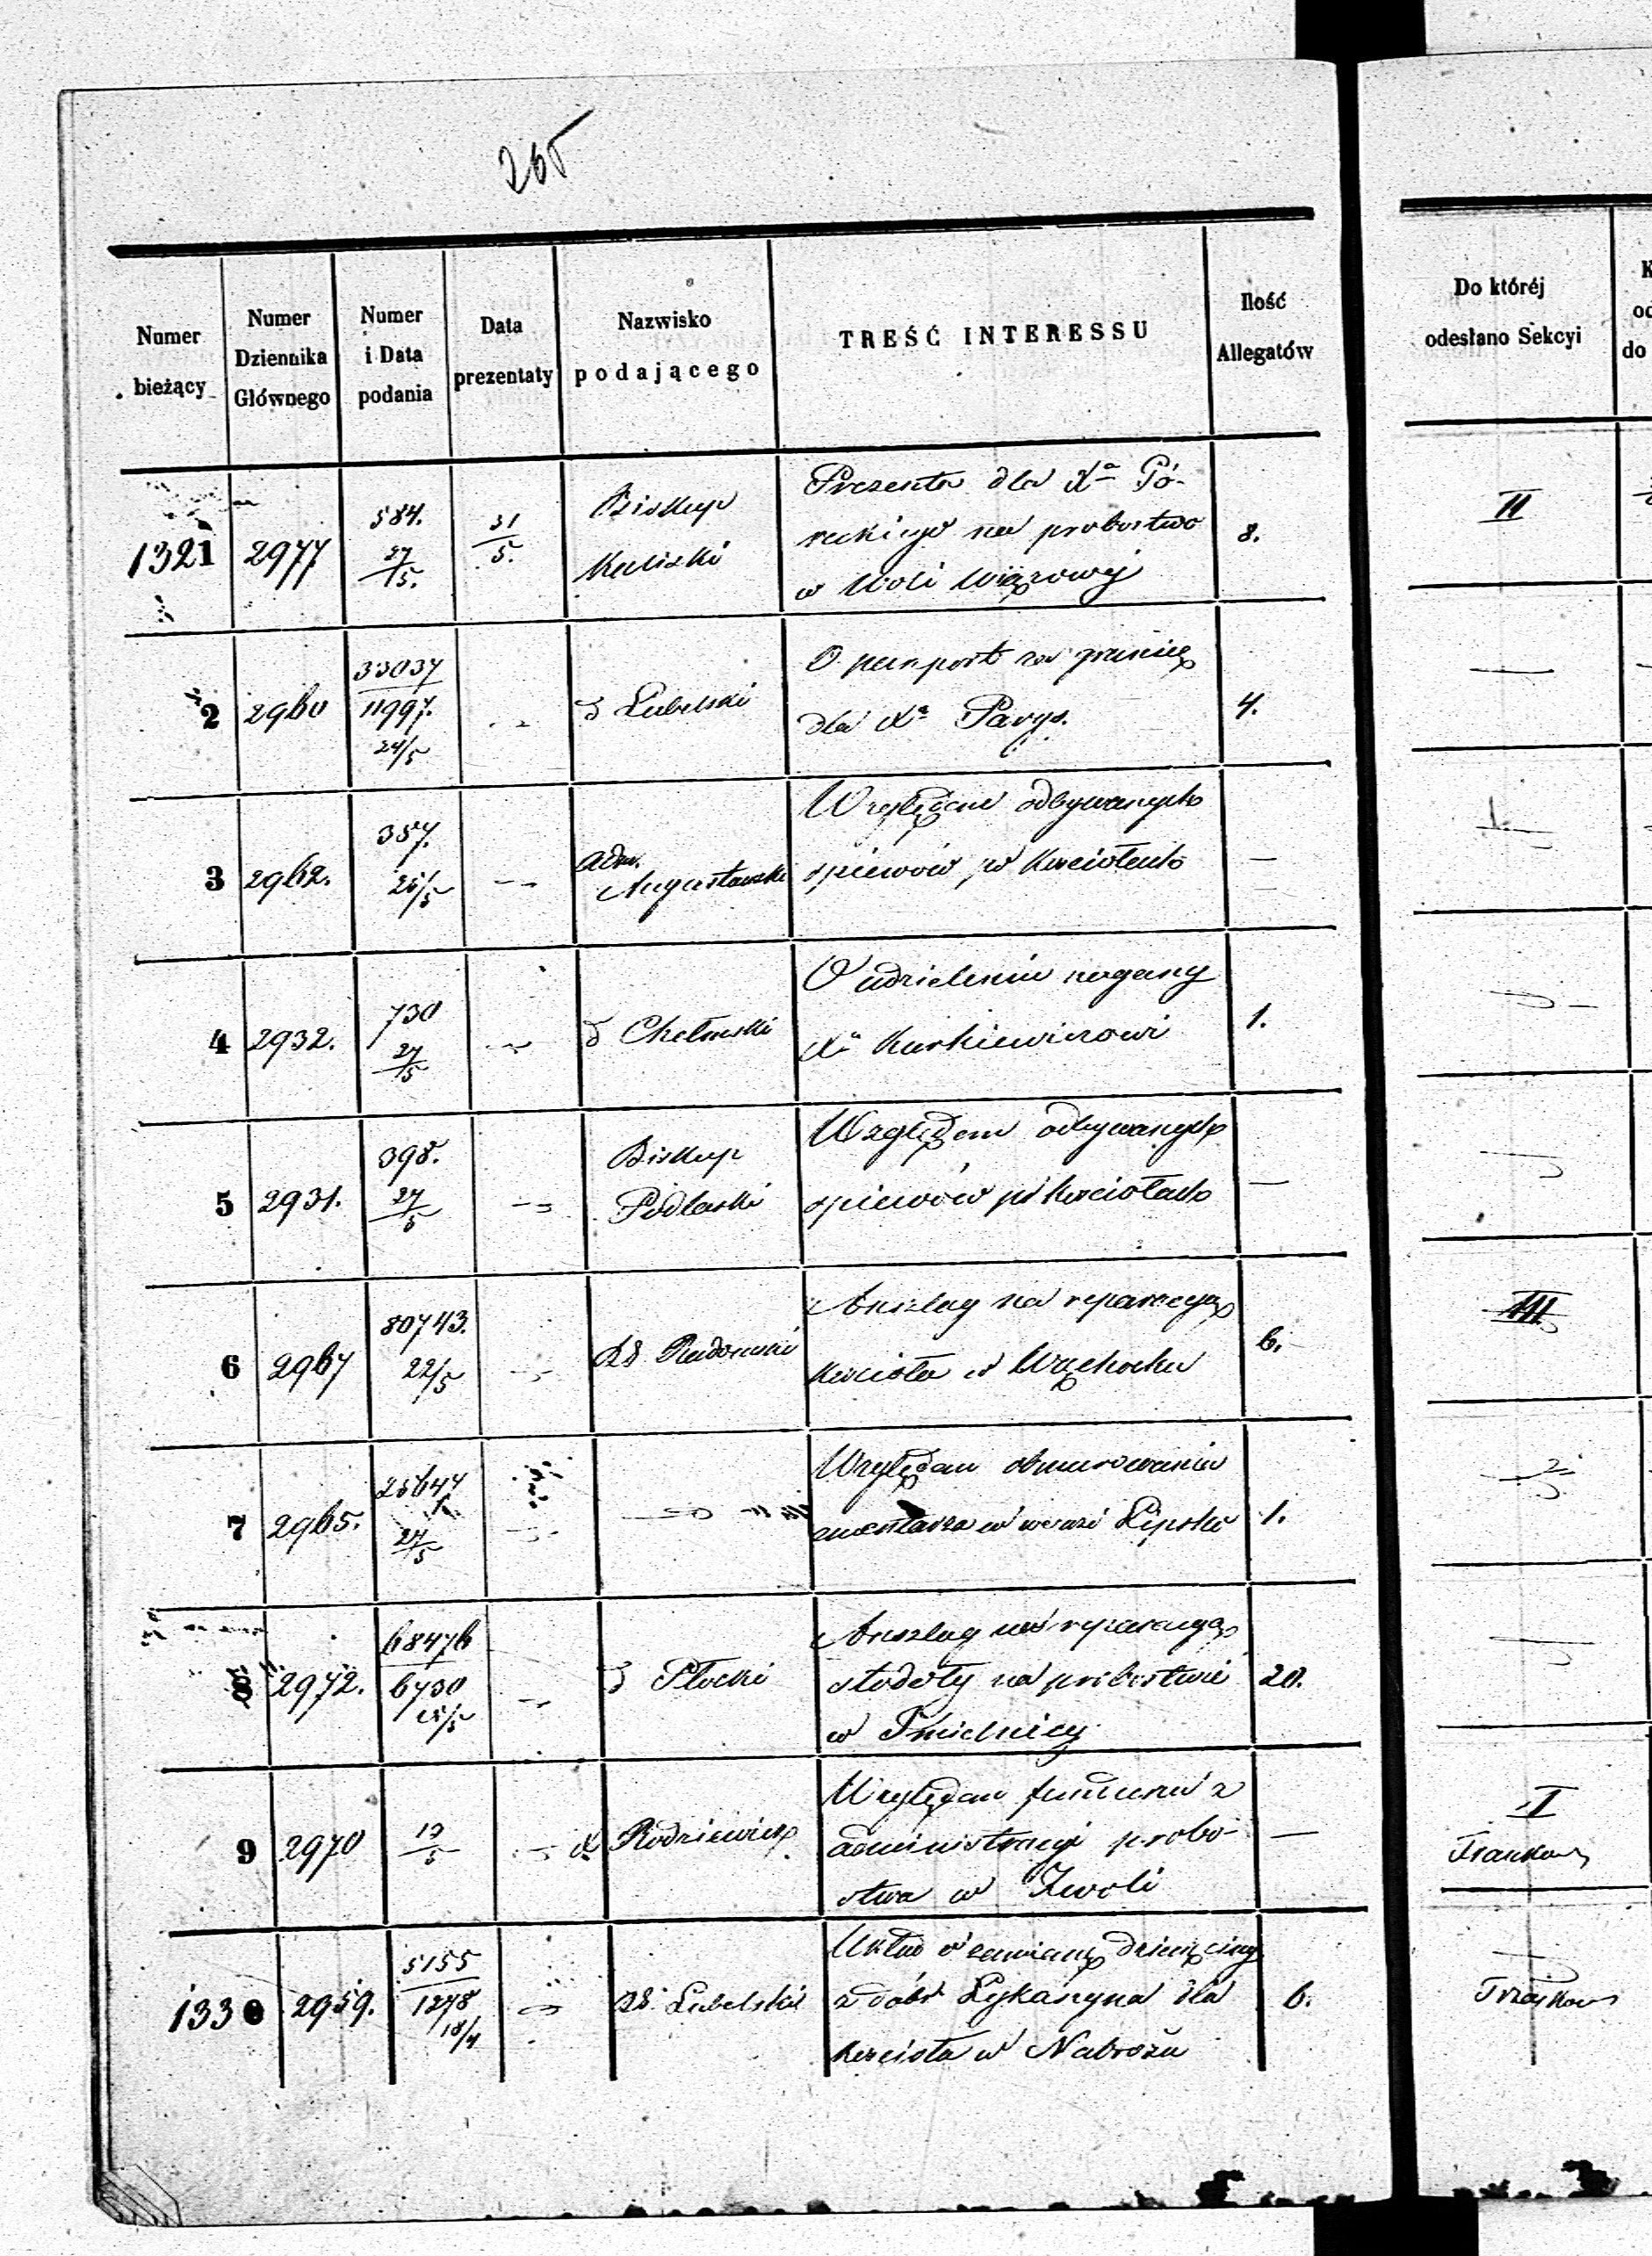 265
Numer bieżący
Numer Dziennika Głównego
Numer i Data podania
Data prezentaty
Nazwisko podającego
TREŚĆ INTERESSU
Ilość Allegatów
Do któréj odesłano Sekcyi
1321 2977 584. 27/5. 31/5. Biskup Kaliski
Prezenta dla Xa Gó-
reckiego na probostwo
w Woli Wiązowéj
8. II
2 2960 33037/11997. 24/5 Lubelski
O paszport za granicę
dla Xa Parys.
4.
3 2962. 357. 25/5 — Adm. Augustowski
Względem odbywanych
śpiewów w Kościołach
—
4 2932. 730 27/5 — Chełmski
O udzielenie nagany
Xu Kurkiewiczowi
1.
5 2931. 398. 27/5 — Biskup Podlaski
Względem odbywanych
śpiewów w Kościołach
—
6 2967 80743. 22/5 — Radomski
Anszlag na reparacyą
kościoła w Wąchocku
6. III
7 2965. 25647 27/5 —
Względem obmurowania
cmentarza w wsi Lipsko
1.
8 2972. 68476/6730 — Płocki
Anszlag na reparacyą
stodoły na probostwie
w
20.
9 2970 — X Rodziewicz
Względem funduszu z
administracyi probo-
stwa w Zwoli
— I
1330 2959. 5155/1278 18/4 — Lubelski
Układ o zamianę dziesięciny
z dóbr Łykaszyna dla
kościoła w Nabrożu
6.